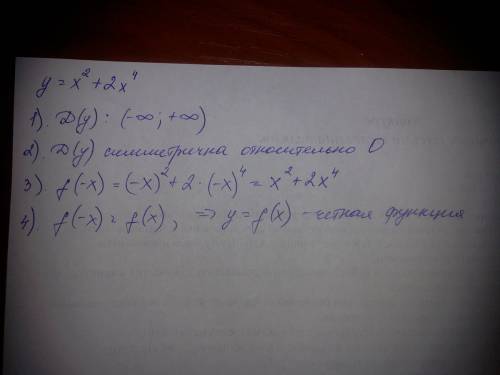 y = x² + 2x⁴
1). D(y): (-∞; +∞)
2). D(y) симметрична относительно 0
3). f(-x) = (-x)² + 2·(-x)⁴ = x² + 2x⁴
4). f(-x) = f(x), => y = f(x) - четная функция